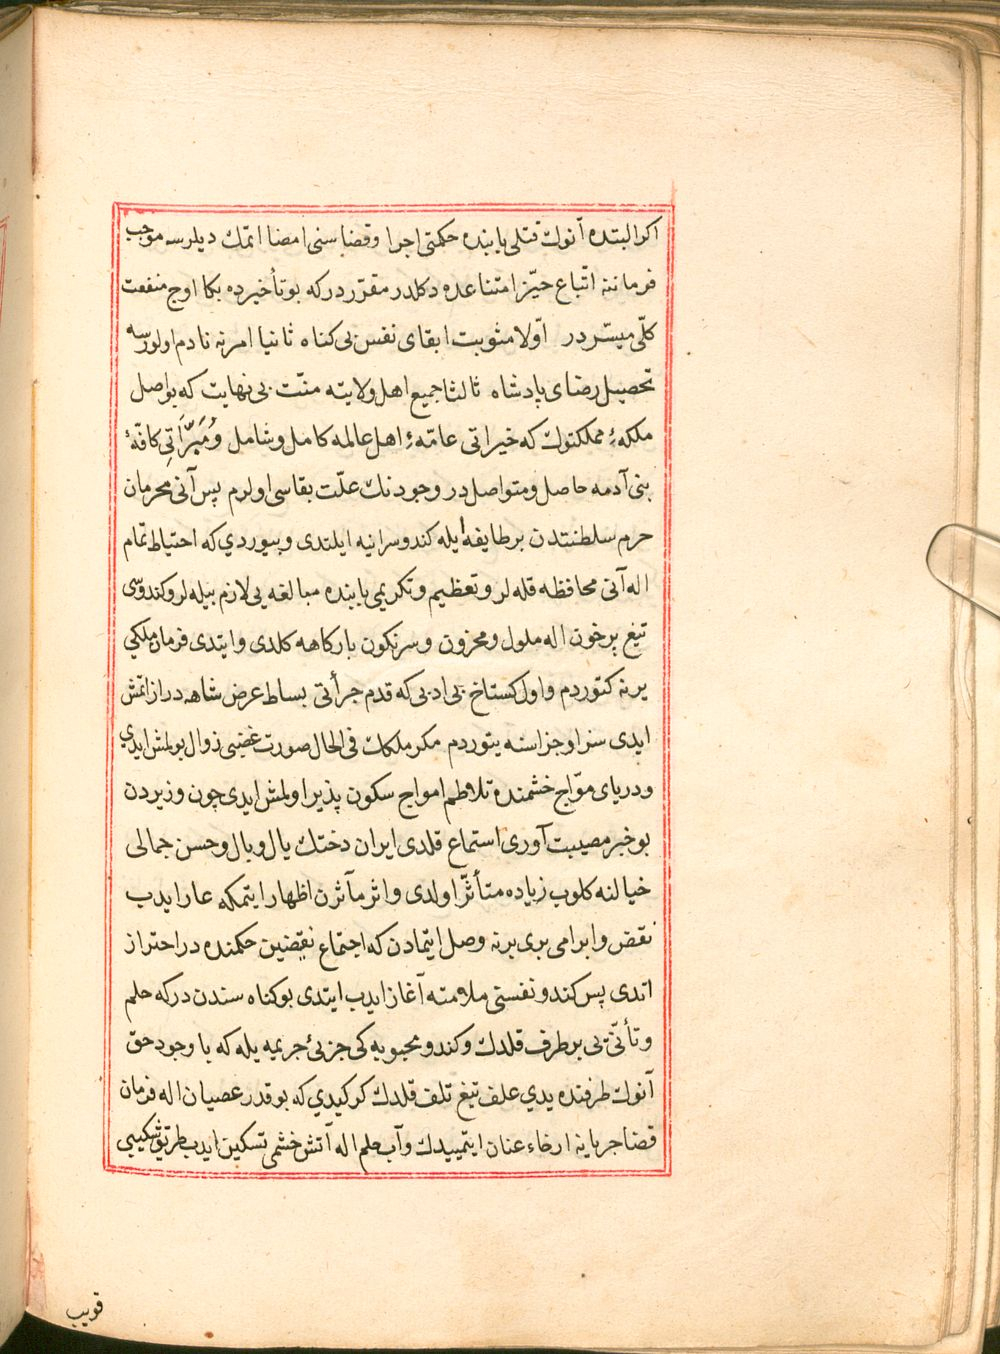 اكر البتده آنوك قتلی بابنده حكمتی اجرا وقضا سنی امضا اتمك ديلرسه موجب
فرماننه اتّباع حيّز امتناعده دكلدر مقرّردركه بو تأخيرده بكا اوج منفعت
كلّی ميسّردر اوّلا مثوبت ابقای نفس بی كناه ثانيا امرنه نادم اولورسه
تحصيل رضای پادشاه ثالثا جميع اهل ولايته منّت بی نهايت كه بو اصل
ملكهٔ مملكتوك كه خيراتی عامّهٔ اهل عالمه كامل وشامل وُمَبرَّاتِی كافّهٔ
بنی آدمه حاصل ومتواصلدر وجودنك علّت بقاسی اولرم پس آنی محرمان
حرم سلطنتدن بر طايفه ايله كندو سرانيه ايلتدی وبيوردي كه احتياط تمّام
اله آتی محافظه قله لر وتعظيم وتكريمی بابنده مبالغه يی لازم بيله لر وكندوسی
تيغ برخون اله ملول ومحزون وسرنكون باركاهه كلدی وايتدی فرمان ملكی
يرنه كتوردم واول كستاخ بی ادبی كه قدم جرأتی بساط عرض شاهه دراز اتمش
ايدی سزا وجزاسنه يتوردم مكر ملكك فی الحال صورت غضبی زوال بولمش ايدي
ودريای موّاج خشمنده تلاطم امواج سكون پذير اولمش ايدی چون وزيردن
بو خبر مصيبت آوری استماع قلدی ايران دختك يال وبال وحسن جمالی
خيالنه كلوب زياده متأثّر اولدی واثر مآثرن اظهار ايتمكه عار ايدب
نقض وابرامی بری برنه وصل ايتمادن كه اجتماع نقيضين حكمنده در احتراز
اتدی پس كندو نفسنی ملامته آغاز ايدب ايتدی بو كناه سندن دركه حلم
وتأنّی يی بر طرف قلدك وكندو محبوبه كی جزئ جريمه يله كه با وجود حق
آنوك طرفنده يدي علف تيغ تلف قلدك كركيدي كه بو قدر عصيان اله فرمان
قضا جرياينه ارخاء عنان ايتمييدك وآب حلم اله آتش خشمی تسكين ايدب طريق شكيبی
قويب